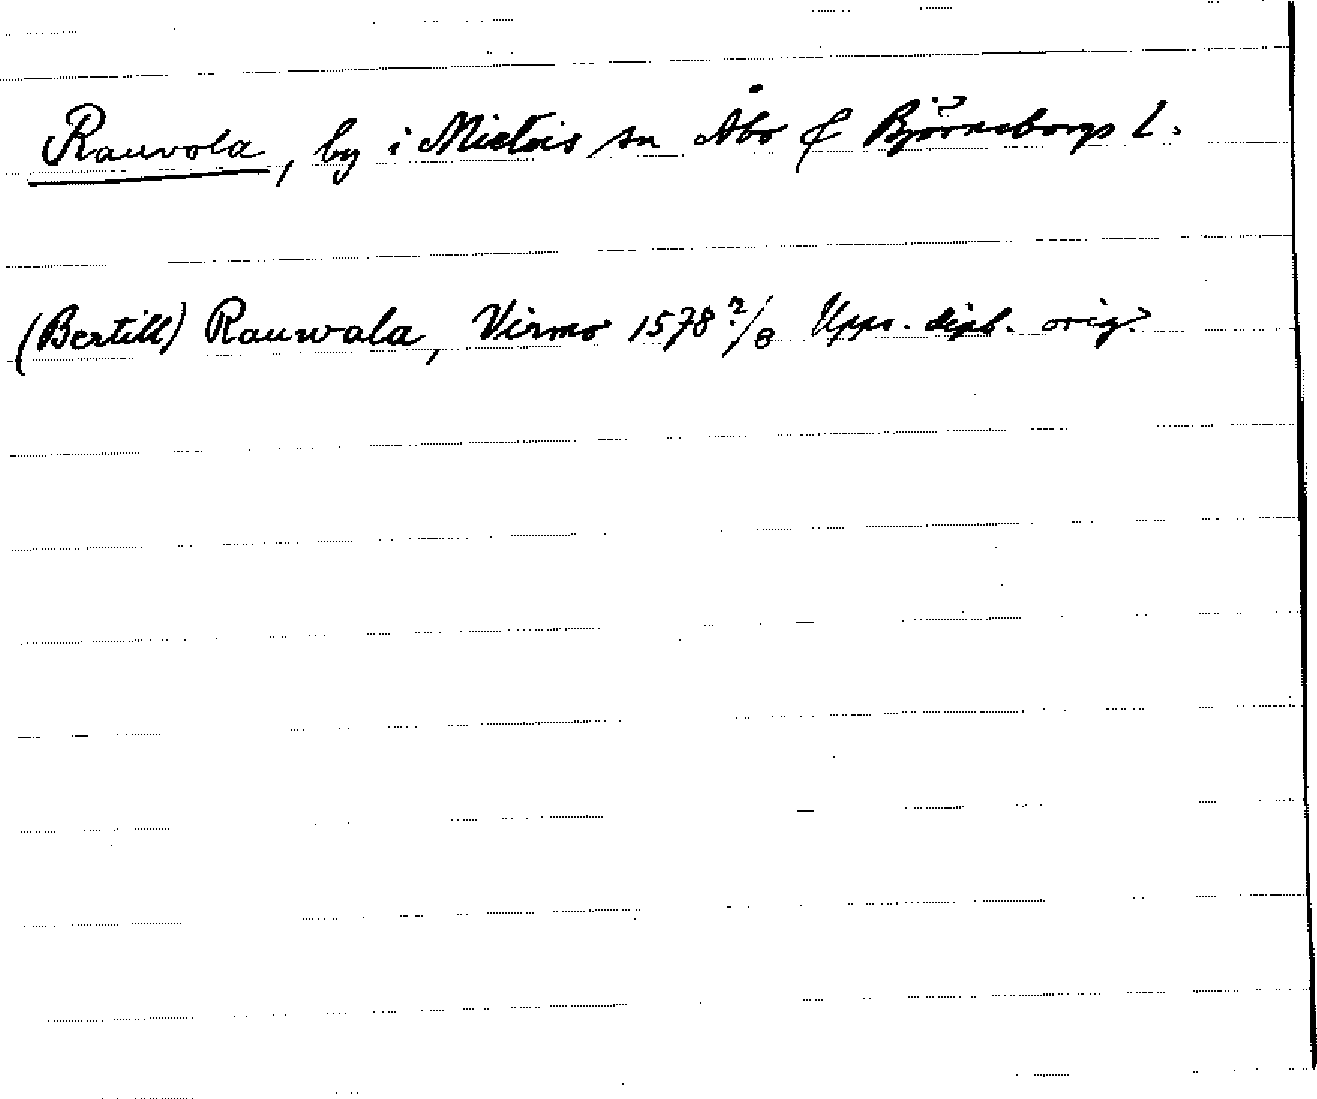 Rauvola, by i Mietois sn Åbo & Björneborgs l.
(Bertill) Rauwala, Virmo 1578 2/8 Upps. dipl. orig.